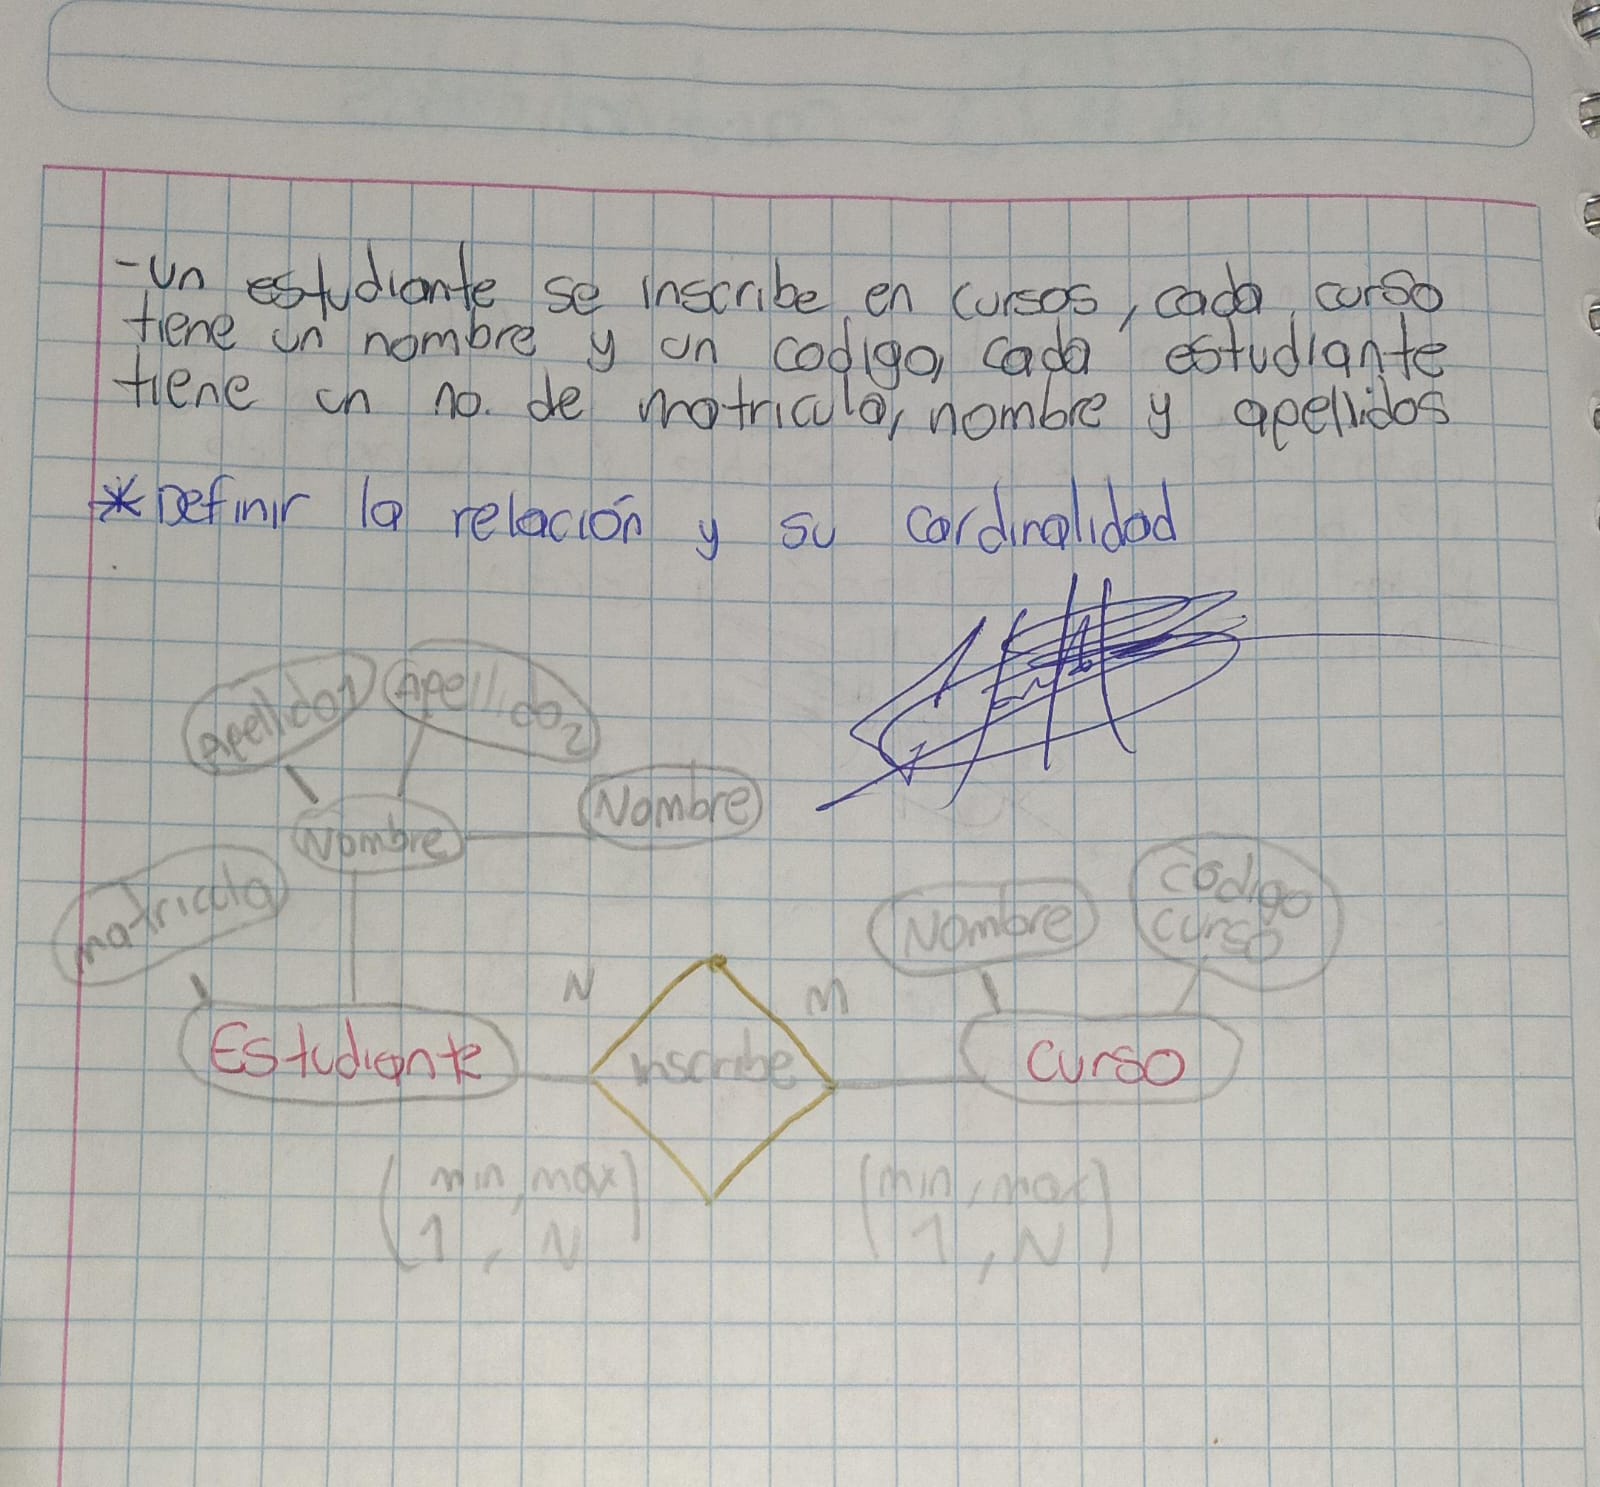 -un estudiante se inscribe en cursos, cada curso
tiene un nombre y un codigo, cada estudiante
tiene un no. de matricula, nombre y apellidos
*Definir la relación y su cardinalidad
Apellido1 Apellido2
Nombre Nombre
matricula
Nombre
codigo
curso
N M
Estudiante inscribe curso
(min, max) (min, max)
1, N 1, N